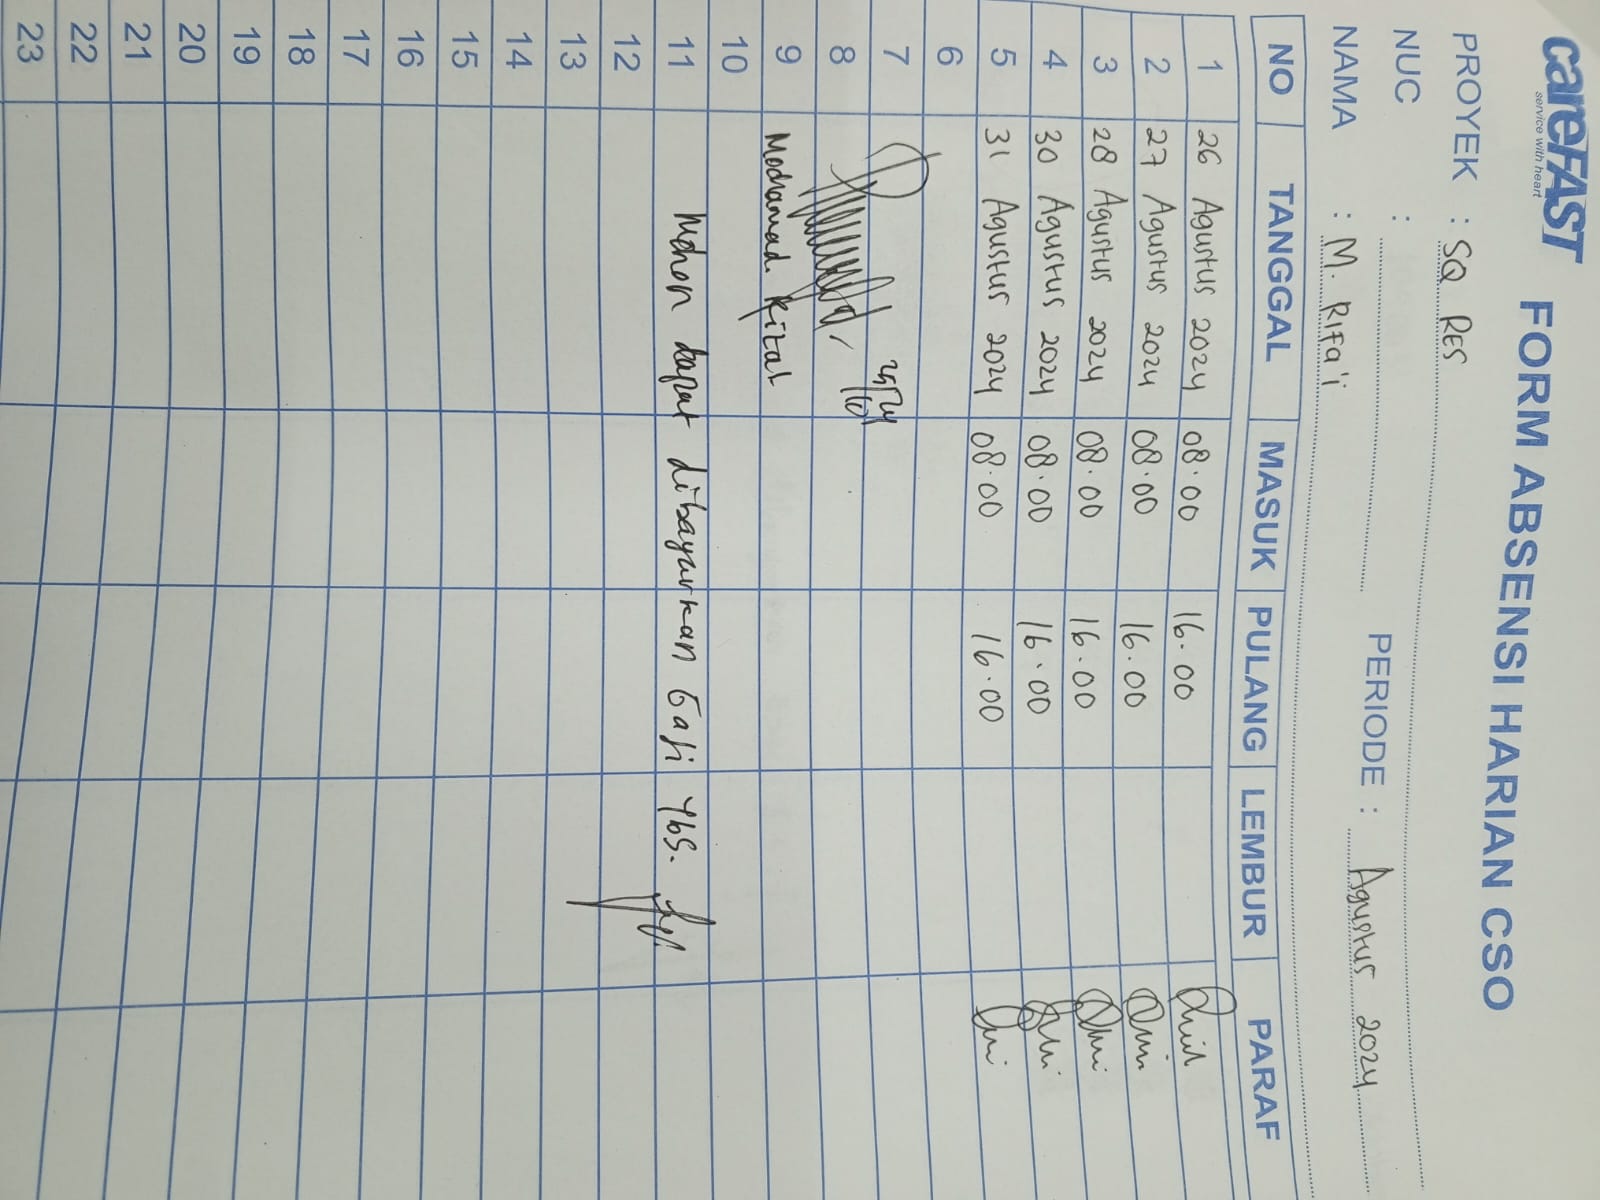 careFAST
service with heart
FORM ABSENSI HARIAN CSO
PROYEK : SQ RES
NUC :
NAMA : M. RIFA'I
PERIODE : Agustus 2024
NO TANGGAL MASUK PULANG LEMBUR PARAF
1 26 Agustus 2024 08.00 16.00
2 27 Agustus 2024 08.00 16.00
3 28 Agustus 2024 08.00 16.00
4 30 Agustus 2024 08.00 16.00
5 31 Agustus 2024 08.00 16.00
6
7
8
9 Mochamad Rizal
10
11 Mohon dapat dibayarkan Gaji Ybs.
12
13
14
15
16
17
18
19
20
21
22
23